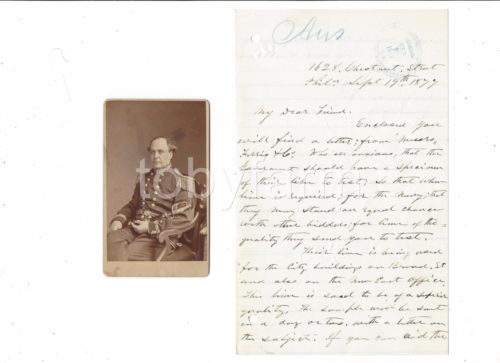 Ans
1628. Chestnut. Street
Phila Sept 19th 1877
My Dear Friend.
Enclosed you
will find a letter from Messrs.
& Co. Who are anxious, that the
should have a specimen
of their lime to test, so that when
lime is required, for the Navy, that
they may stand an equal chance
with other bidders, for lime of the
quality they send you to test.
Their lime is being used
for the City buildings on Broad, St
and also on the New Post Office,
This lime is said to be of a superior
quality. The sample will be sent
in a day or two, with a letter on
the subject. If you can aid the
toby